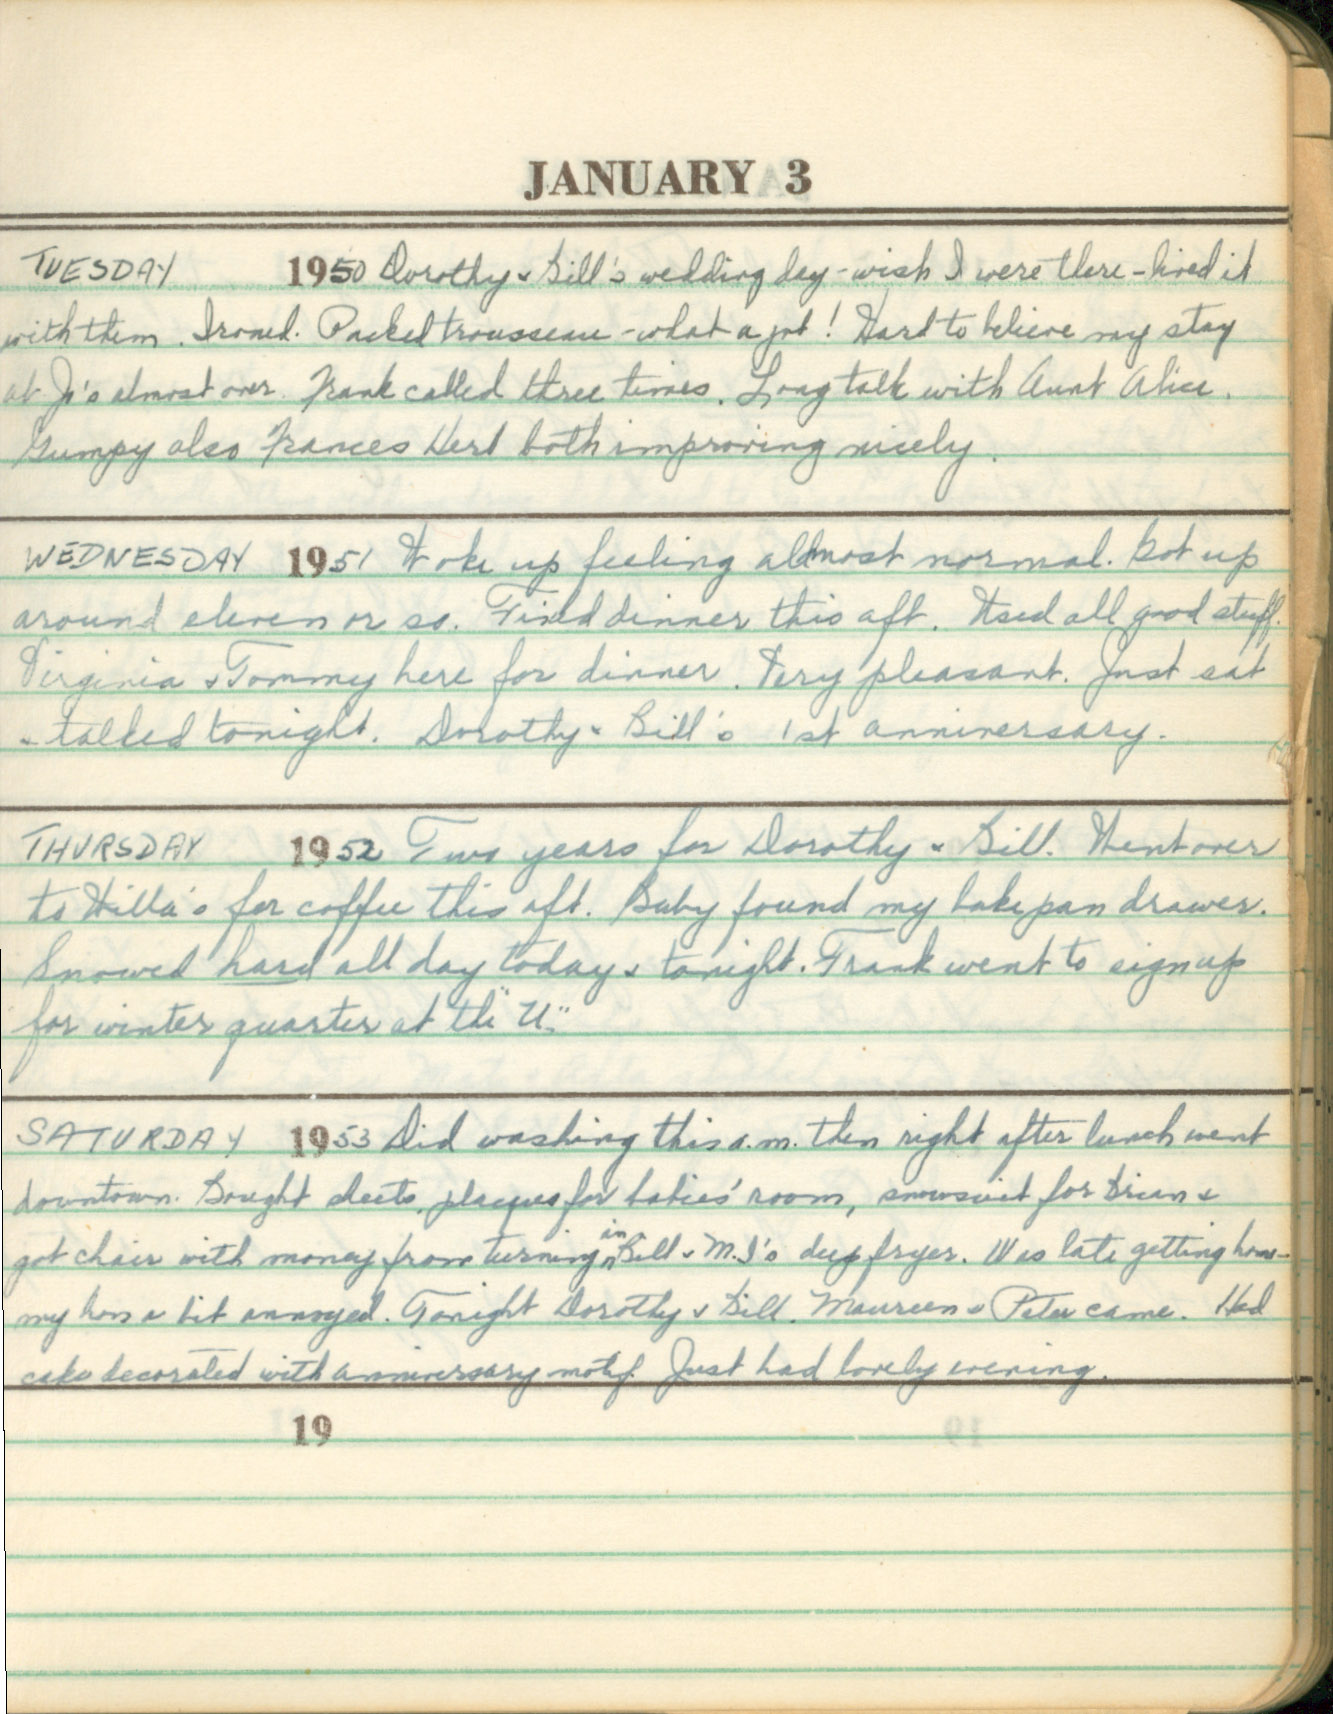 JANUARY 3
TUESDAY 1950 Dorothy & Bill's wedding day - wish I were there - lived it
with them. Ironed. Packed trousseau - what a job! Hard to believe my stay
at Jo's almost over. Frank called three times. Long talk with Aunt Alice.
Gumpy also Frances Hert both improving nicely.
WEDNESDAY 1951 Woke up feeling almost normal. Got up
around eleven or so. Fixed dinner this aft. Used all good stuff.
Virginia & Tommy here for dinner. Very pleasant. Just sat
& talked tonight. Dorothy & Bill's 1st anniversary.
THURSDAY 1952 Two years for Dorothy & Bill. Went over
to Willa's for coffee this aft. Baby found my bake pan drawer.
Snowed hard all day today & tonight. Frank went to sign up
for winter quarter at the "U".
SATURDAY 1953 Did washing this a.m. then right after lunch went
downtown. Bought sheets, plaques for babies' room, snowsuit for Brian &
got chair with money from turning in Bill & M.J's deep fryer. Was late getting home -
my hon a bit annoyed. Tonight Dorothy & Bill, Maureen & Peter came. Had
cake decorated with anniversary motif. Just had lovely evening.
19